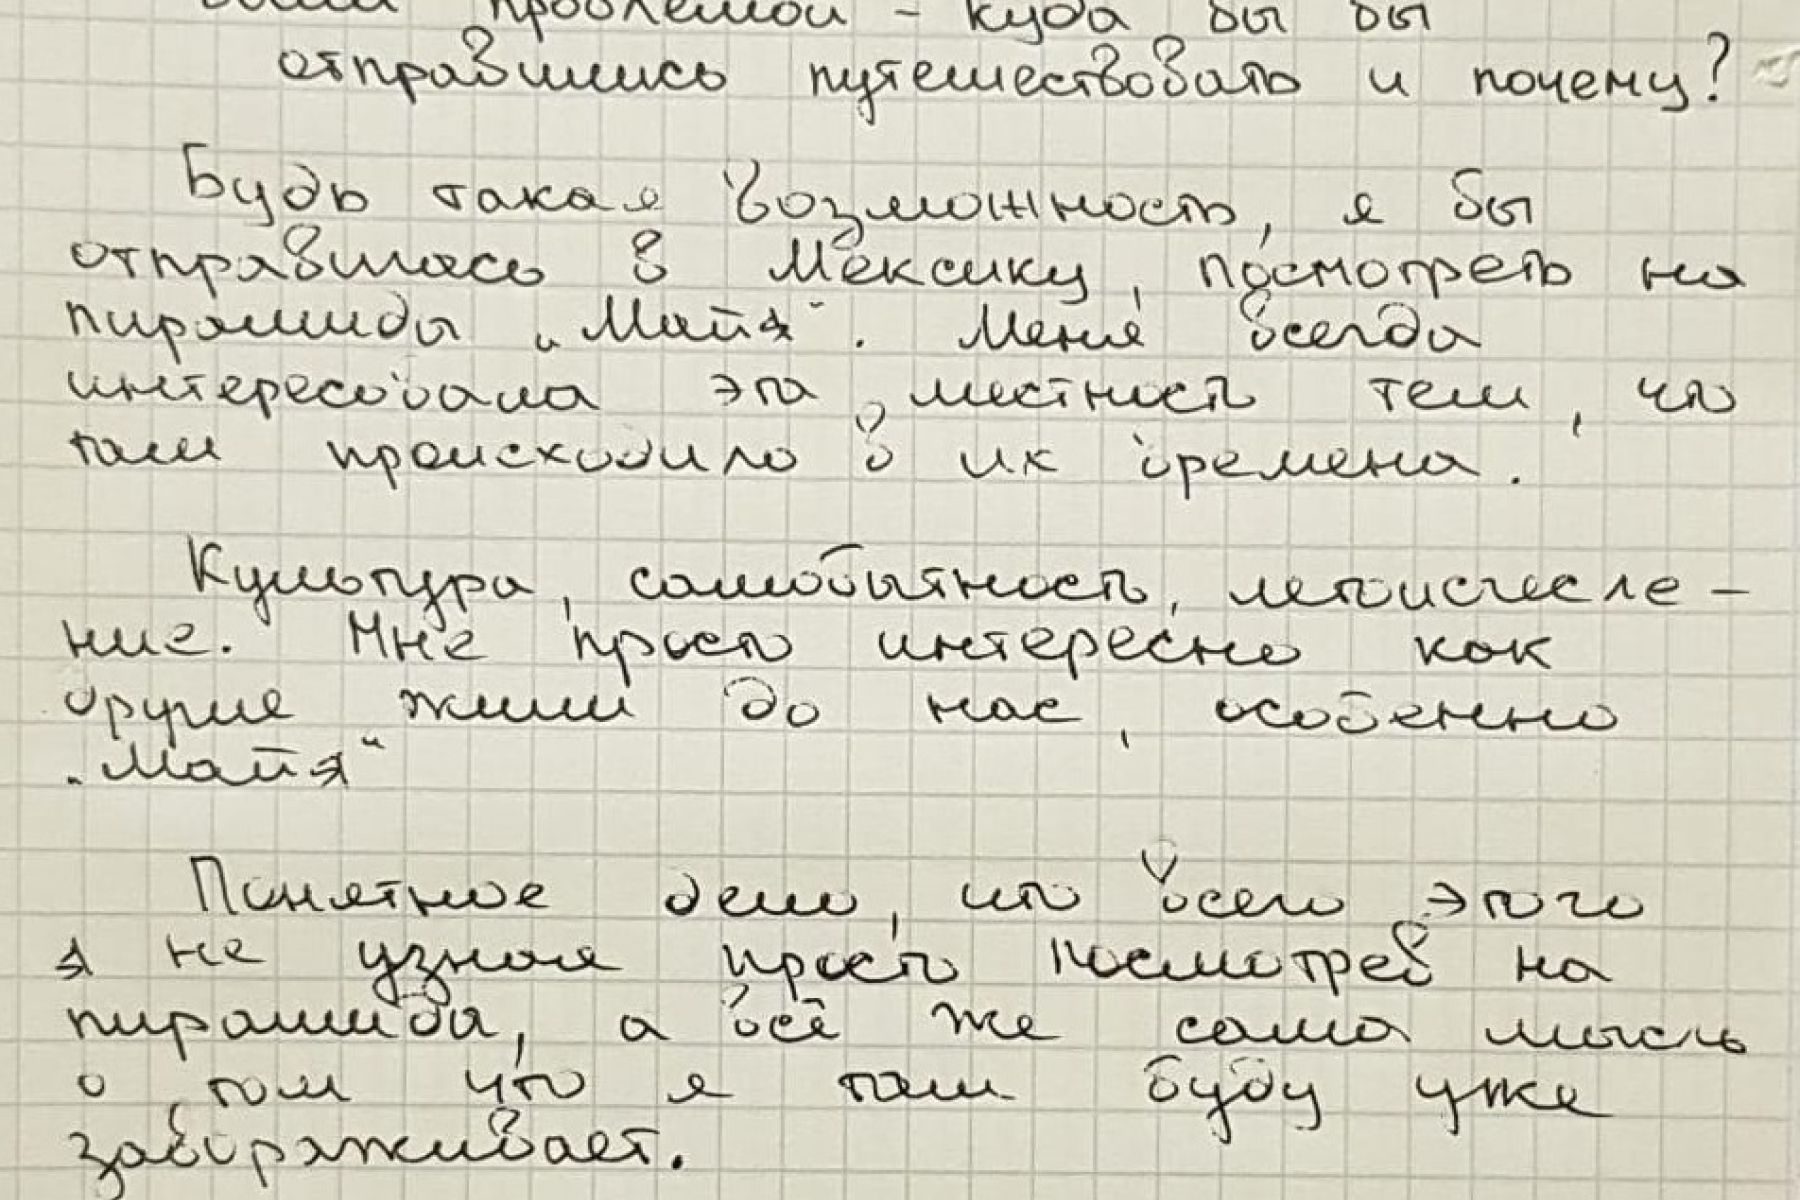 проблемой - куда бы вы
отправились путешествовать и почему?
Будь такая возможность, я бы
отправилась в Мексику, посмотреть на
пирамиды „Майя“. Меня всегда
интересовала эта местность тем, что
там происходило в их времена.
Культура, самобытность, летоисчесле-
ние. Мне просто интересно как
другие жили до нас, особенно
„Майя“
Понятное дело, что всего этого
я не узнаю просто посмотрев на
пирамида, а всё же сама мысль
о том что я там буду уже
завораживает.